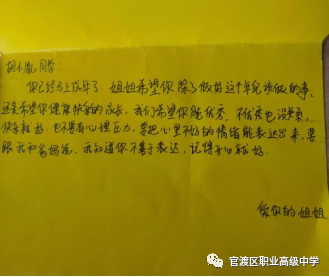 胡小胤同学：
你已经马上成年了，姐姐希望你除了做好这个年纪该做的事，
还是希望你健康快乐的成长。我们希望你能优秀，不优秀也没关系，
快乐就好。也不要有心理压力，要把心里不好的情绪能表达出来，要
跟我和爸妈说。我知道你不善于表达，记得开心就好。
爱你的姐姐
官渡区职业高级中学